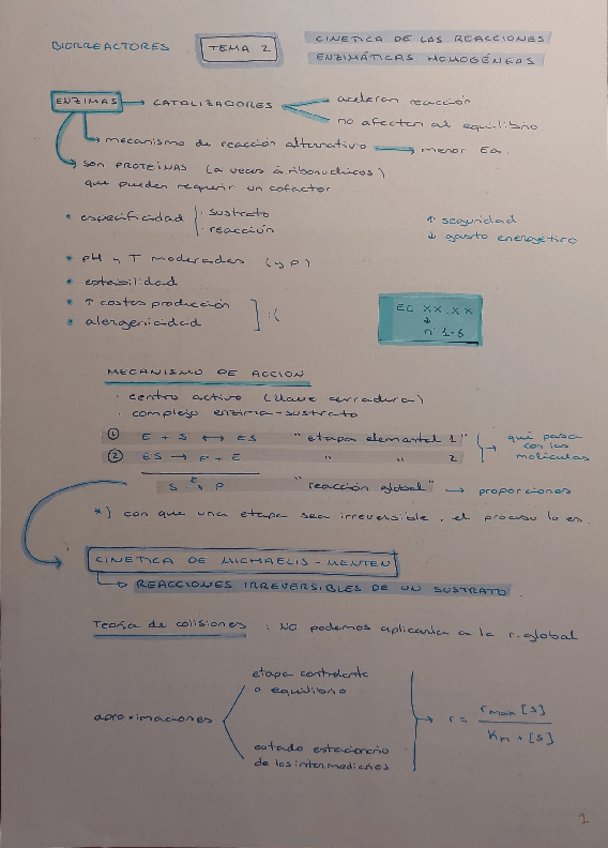 BIORREACTORES
TEMA 2
CINETICA DE LAS REACCIONES
ENZIMÁTICAS HOMOGÉNEAS
ENZIMAS → CATALIZADORES
aceleran reacción
no afectan al equilibrio
mecanismo de reacción alternativo → menor Ea.
SON PROTEÍNAS (a veces á. ribonucleicos)
que pueden requerir un cofactor
• especificidad
· sustrato
· reacción
↑ seguridad
↓ gasto energético
• pH y T moderadas (y P)
• estabilidad
• ↑ costes producción
• alergenicidad
] :(
EC XX.XX
↓
nº 1-6
MECANISMO DE ACCION
· centro activo (llave cerradura)
· complejo enzima-sustrato
① E + S ↔ ES "etapa elemental 1"
② ES → P + E " " 2
→ qué pasa
con las
moléculas
S E→ P "reacción global" → proporciones
*) con que una etapa sea irreversible, el proceso lo es.
CINETICA DE MICHAELIS-MENTEN
→ REACCIONES IRREVERSIBLES DE UN SUSTRATO
Teoría de colisiones : NO podemos aplicarla a la r. global
aproximaciones
etapa controlante
o equilibrio
estado estacionario
de los intermedios
→ r = rmax [S] / Km + [S]
1